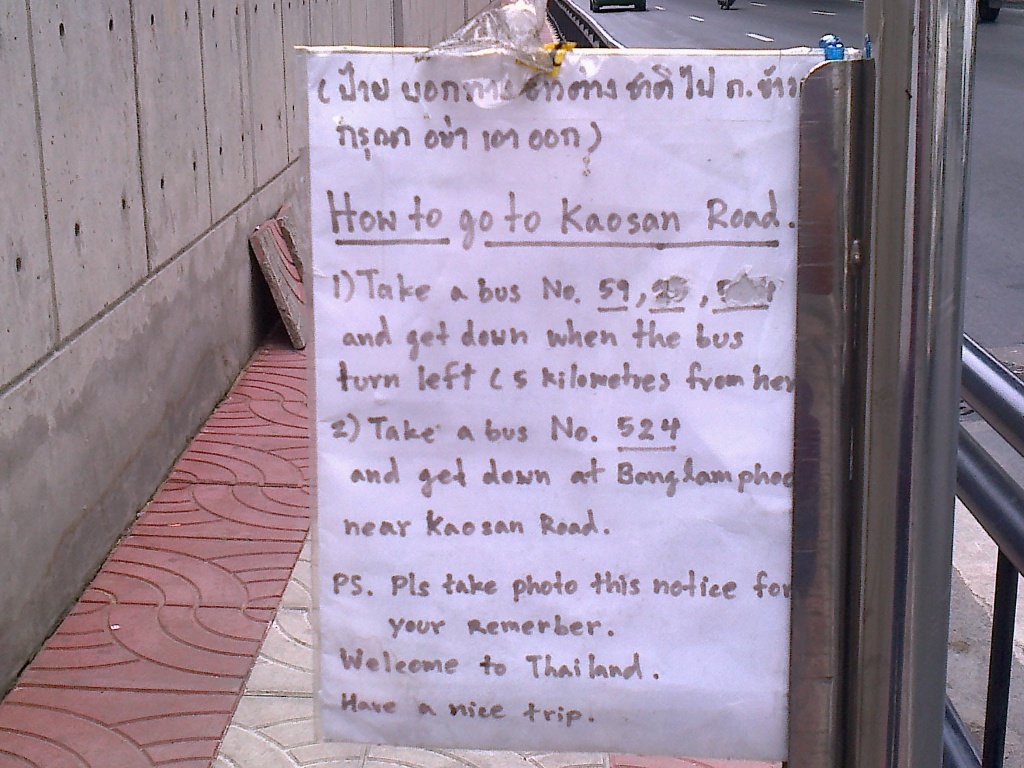 (ป้าย บอกทาง ชาวต่าง ชาติ ไป ถ.ข้าว
กรุณา อย่า เอา ออก)
How to go to Kaosan Road.
1) Take a bus No. 59,
and get down when the bus
turn left ( 5 kilometres from her
2) Take a bus No. 524
and get down at Banglamphoo
near Kaosan Road.
PS. Pls take photo this notice for
your Remerber.
Welcome to Thailand.
Have a nice trip.